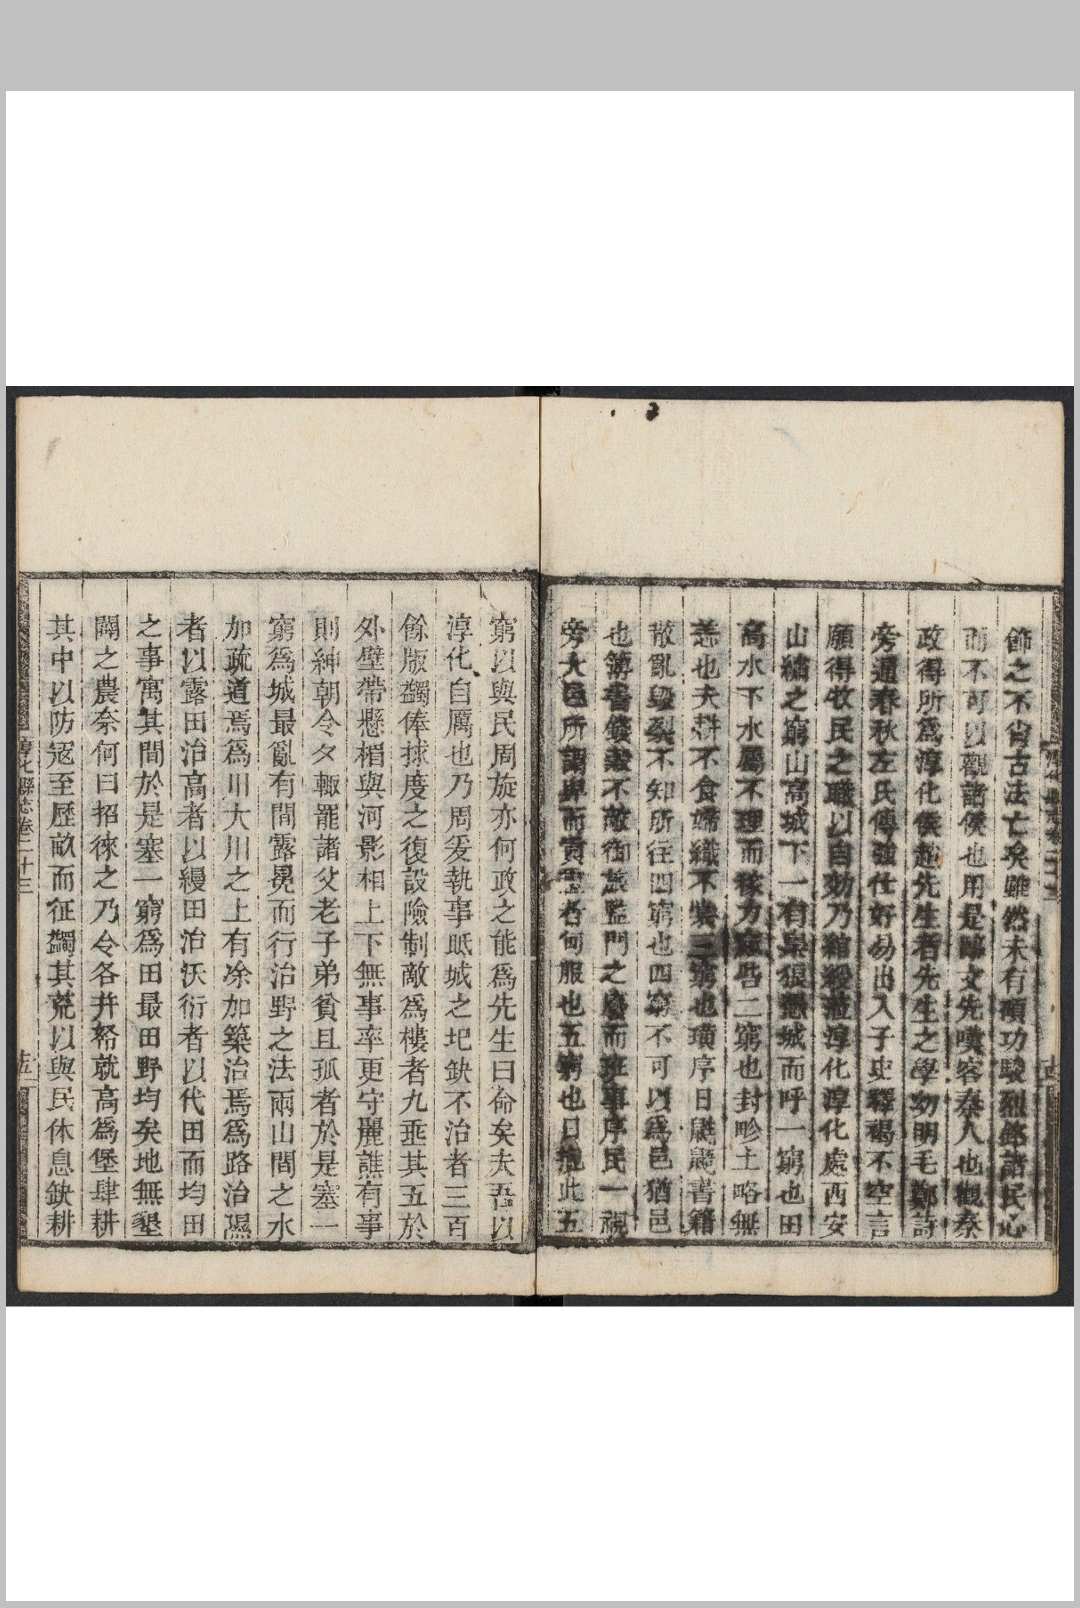 節之不肯古法亡矣雖然未有碩功駿烈銘諸民心
而不可以觀諸侯也用是歸文先嘆容秦人也觀秦
政得所爲淳化侯趙先生者先生之學幼明毛鄭詩
旁通春秋左氏傳強仕好易出入子史釋褐不空言
願得牧民之職以自効乃綰綬蒞淳化淳化處西安
山繡之窮山高城下一有梟狼憑城而呼一窮也田
高水下水屬不理而稼力窳呰二窮也封畛土略無
恙也夫耕不食婦織不裳三窮也璜序日鬭譌書籍
散亂毀裂不知所往四窮也四窮不可以爲邑猶邑
也簿書錢糓不敵徃御旅監門之廢而班事序民一視
旁大邑所謂畀而實 者何服也五窮也日擔此五
窮以與民周旋亦何政之能爲先生曰俞矣夫吾以
淳化自厲也乃周爰執事眡城之圮缺不治者三百
餘版蠲俸捄度之復設險制敵爲樓者九亟其五於
外壁帶懸楣與河影相上下無事率更守麗譙有事
則紳朝令夕輙罷諸父老子弟貧且孤者於是塞一
窮爲城最亂有間露冕而行治野之法兩山間之水
加疏道焉爲川大川之上有涂加築治焉爲路治濕
者以露田治高者以縵田治沃衍者以代田而均田
之事寓其間於是塞一窮爲田最田野均矣地無墾
闢之農奈何曰招徠之乃令各井帑就高爲堡肆耕
其中以防寇至歷畝而征蠲其荒以與民休息缺耕
淳化縣志卷二十三
十四
淳化縣志卷二十三
十五